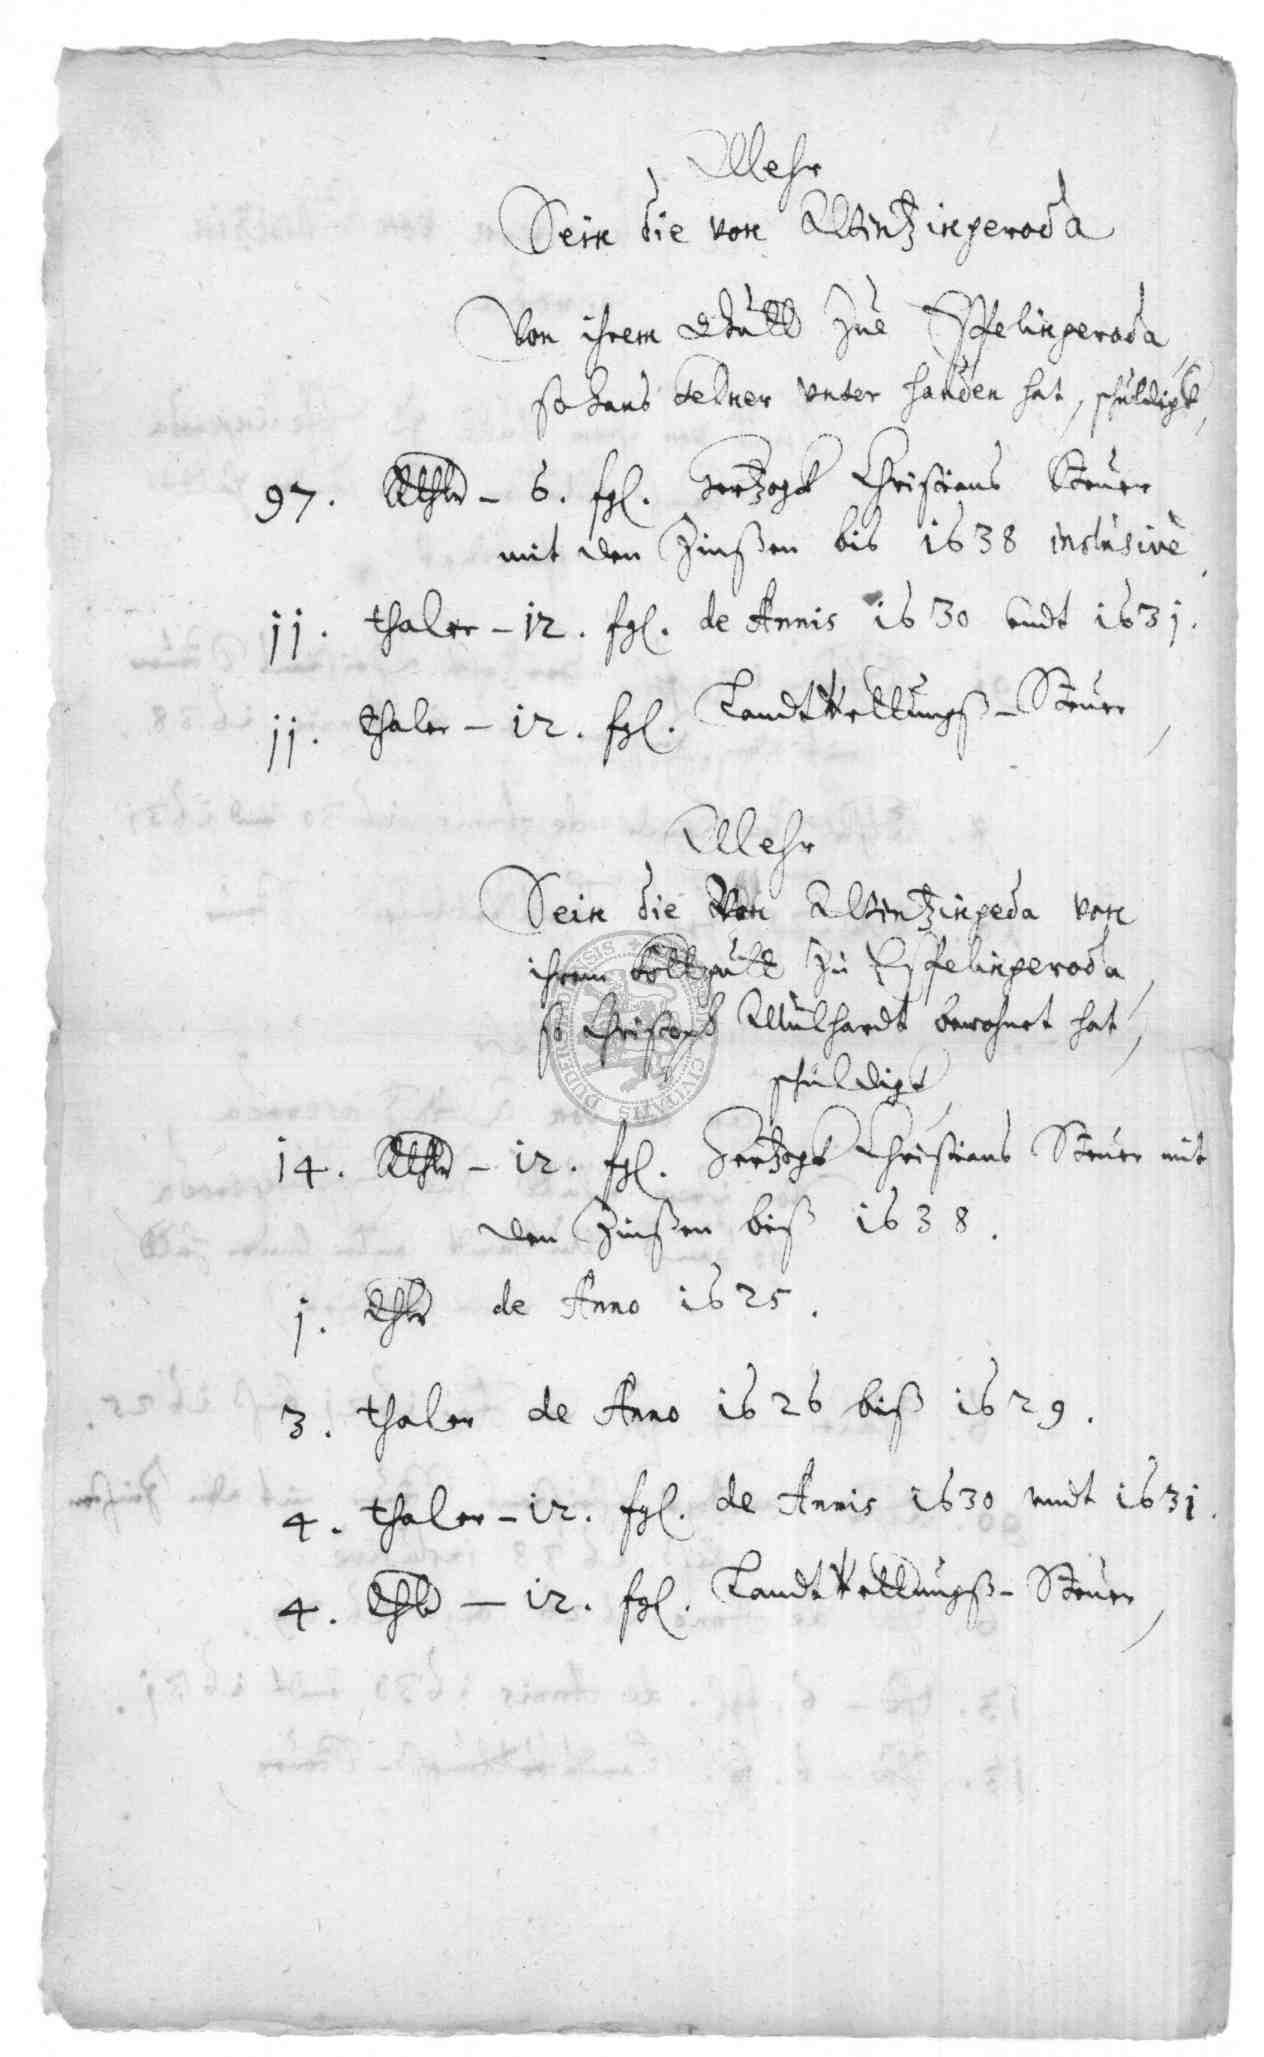 Mehr
Sein die von Wintzingeroda
Von ihrem Gutt Zue Esplingeroda
so hans Telner unter handen hat, schuldigk,
97. Rthlr - 6. fgl. Hertzogk Christians Steuer
mit den Zinßen bis 1638 inclusive
11. thaler - 12. fgl. de Annis 1630 undt 1631.
11. thaler - 12. fgl. Landtrettungß-Steuer,
Mehr
Sein die Von Wintzingeda von
ihrem zu Esplingeroda,
so Christoph Mülhardt bewohnet hat,
schuldigk
14. Rthlr - 12. fgl. Hertzogk Christians Steuer mit
den Zinßen biß 1638.
1. thlr de Anno 1625.
3. thaler de Anno 1626 biß 1629.
4. thaler - 12. fgl. de Annis 1630 undt 1631.
4. thlr - 12. fgl. Landtrettungß-Steuer,